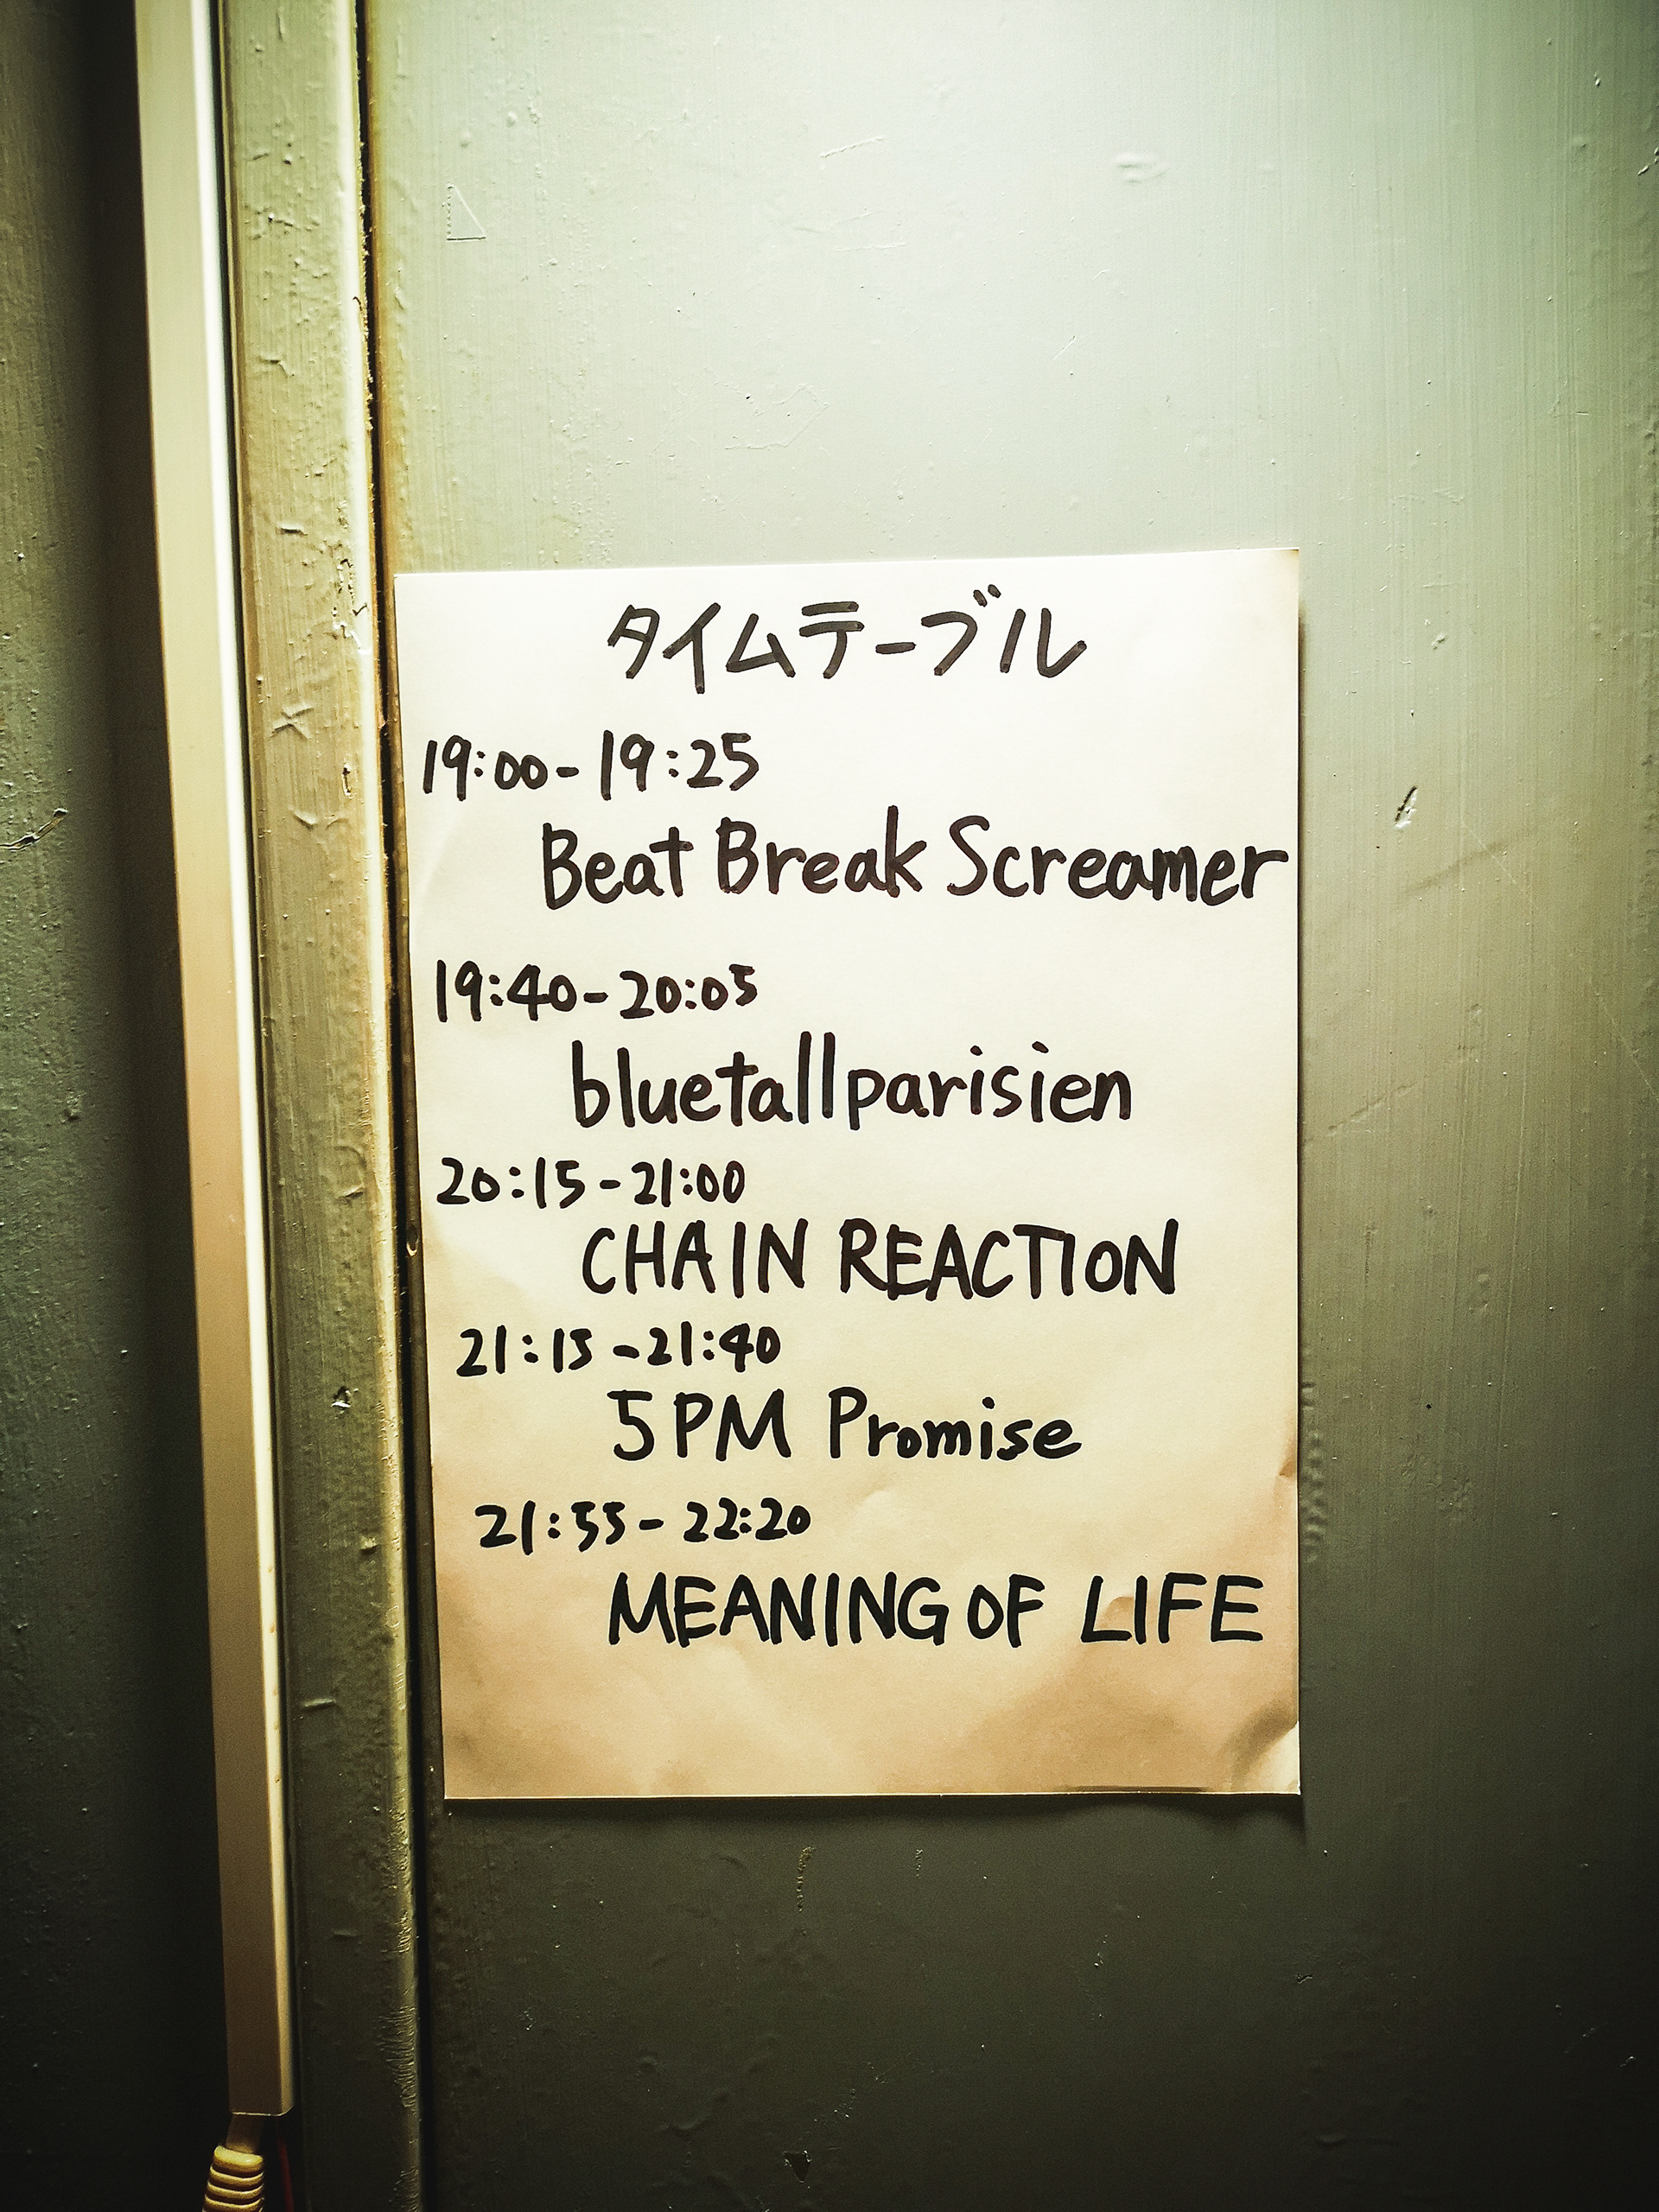 タイムテーブル
19:00-19:25
Beat Break Screamer
19:40-20:05
bluetallparisien
20:15-21:00
CHAIN REACTION
21:15-21:40
5PM Promise
21:55-22:20
MEANING OF LIFE